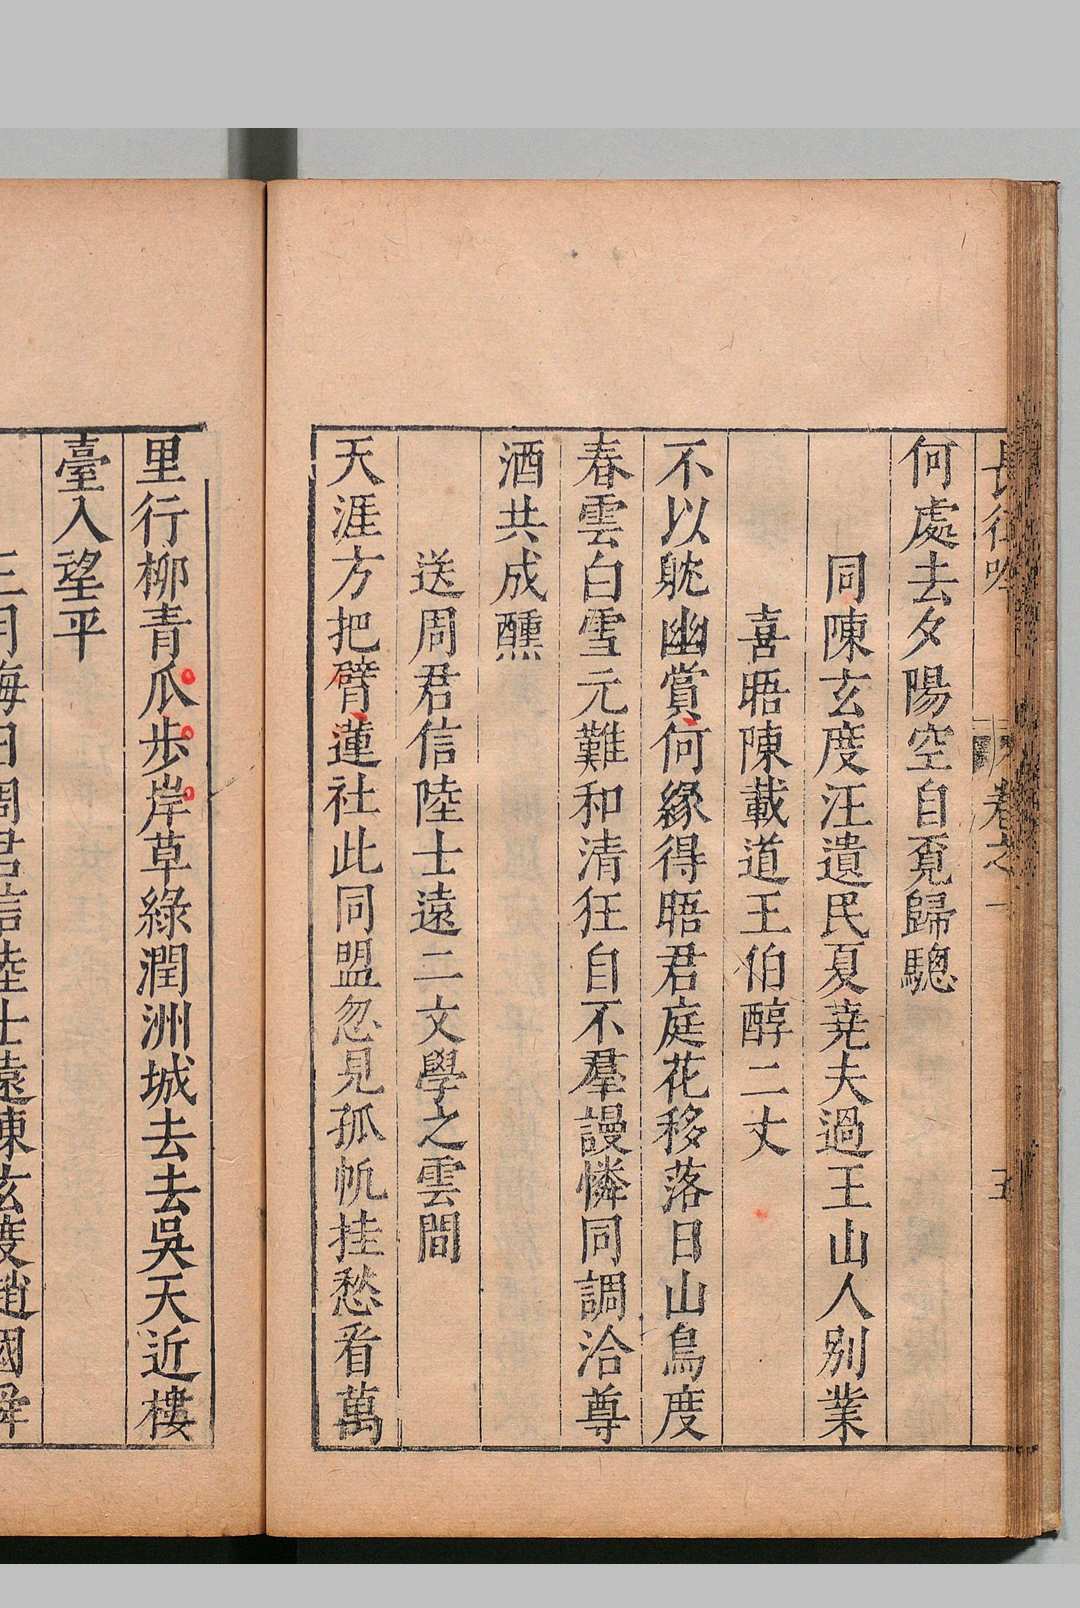 卷之一
五
何處去夕陽空自覓歸驄
同陳玄度汪遺民夏堯夫過王山人別業
喜晤陳載道王伯醇二丈
不以躭幽賞何緣得晤君庭花移落日山鳥度
春雲白雪元難和清狂自不羣謾憐同調洽尊
酒共成醺
送周君信陸士遠二文學之雲間
天涯方把臂蓮社此同盟忽見孤帆挂愁看萬
里行柳青瓜步岸草綠潤洲城去去吳天近樓
臺入望平
三月晦日周君信陸士遠陳玄度趙國舜